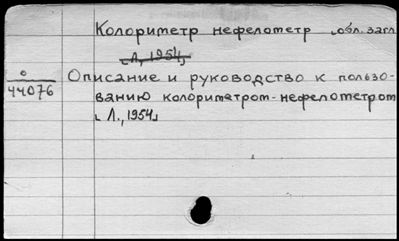 Колориметр нефелометр обл. загл.
[Л., 1954]
О
44076
Описание и руководство к пользо-
ванию колориметром-нефелометром
[Л., 1954]